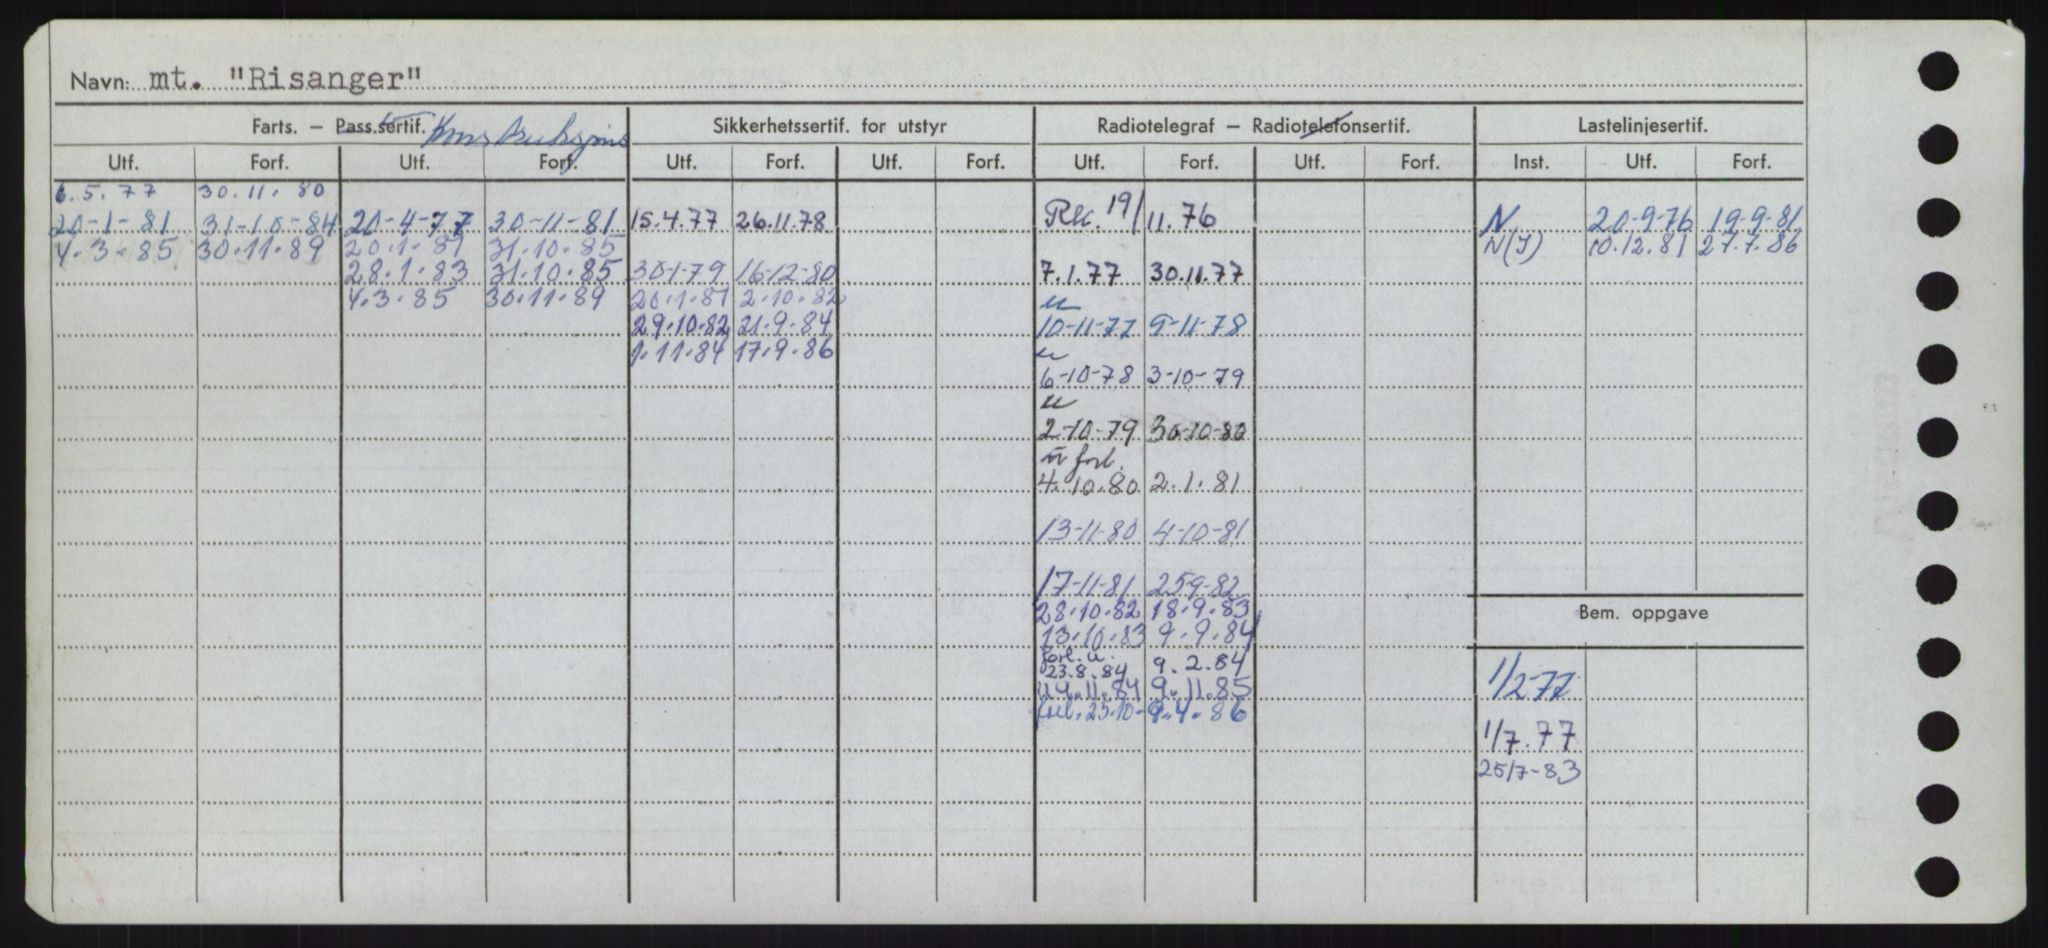 Navn: mt. "Risanger"
Farts. – Pass.sertif. Konstruksjons Sikkerhetssertif. for utstyr Radiotelegraf – Radiotelefonsertif. Lastelinjesertif.
Utf. Forf. Utf. Forf. Utf. Forf. Utf. Forf. Utf. Forf. Utf. Forf. Inst. Utf. Forf.
6.5.77 30.11.80
20-1-81 31-10-84 20-4-77 30-11-81 15.4.77 26.11.78 Rk. 19/11.76 N 20-9-76 19-9-81
4.3.85 30.11.89 20.1.81 31.10.85 N(J) 10.12.81 27.7.86
28.1.83 31.10.85 30-1-79 16-12-80 7.1.77 30.11.77
4.3.85 30.11.89 20.1.81 2.10.82 u
29.10.82 21.9.84 10-11-77 9-11-78
1.11.84 17.9.86 u
6-10-78 3-10-79
u
2-10-79 30-10-80
u forl.
4.10.80 2.1.81
13-11-80 4-10-81
17-11-81 25-9-82
28.10.82 18.9.83
Bem. oppgave
13.10.83 9.9.84
forl. u.
23.8.84 9.2.84
14.11.84 9.11.85
25.10- 9.4.86
1/2-77
1/7.77
25/7-83